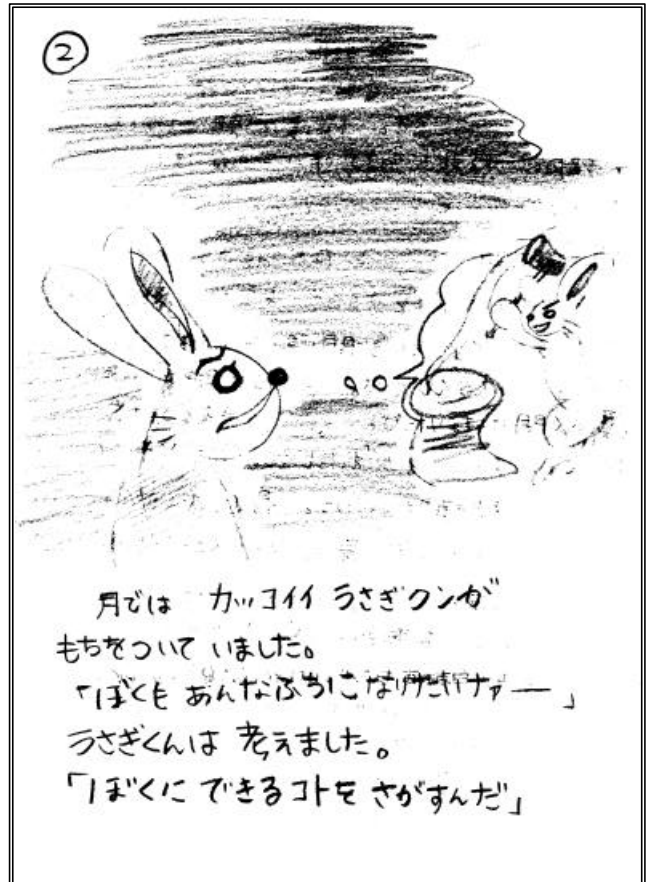 ②
月では カッコイイ うさぎクンが
もちをついて いました。
「ぼくも あんなふうになりたいナァー」
うさぎくんは 考えました。
「ぼくに できるコトを さがすんだ」